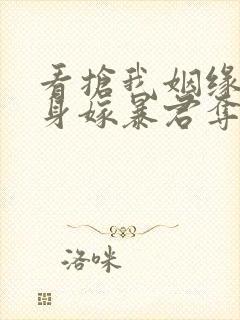 看搶我姻缘
身嫁暴君奪
洛咪